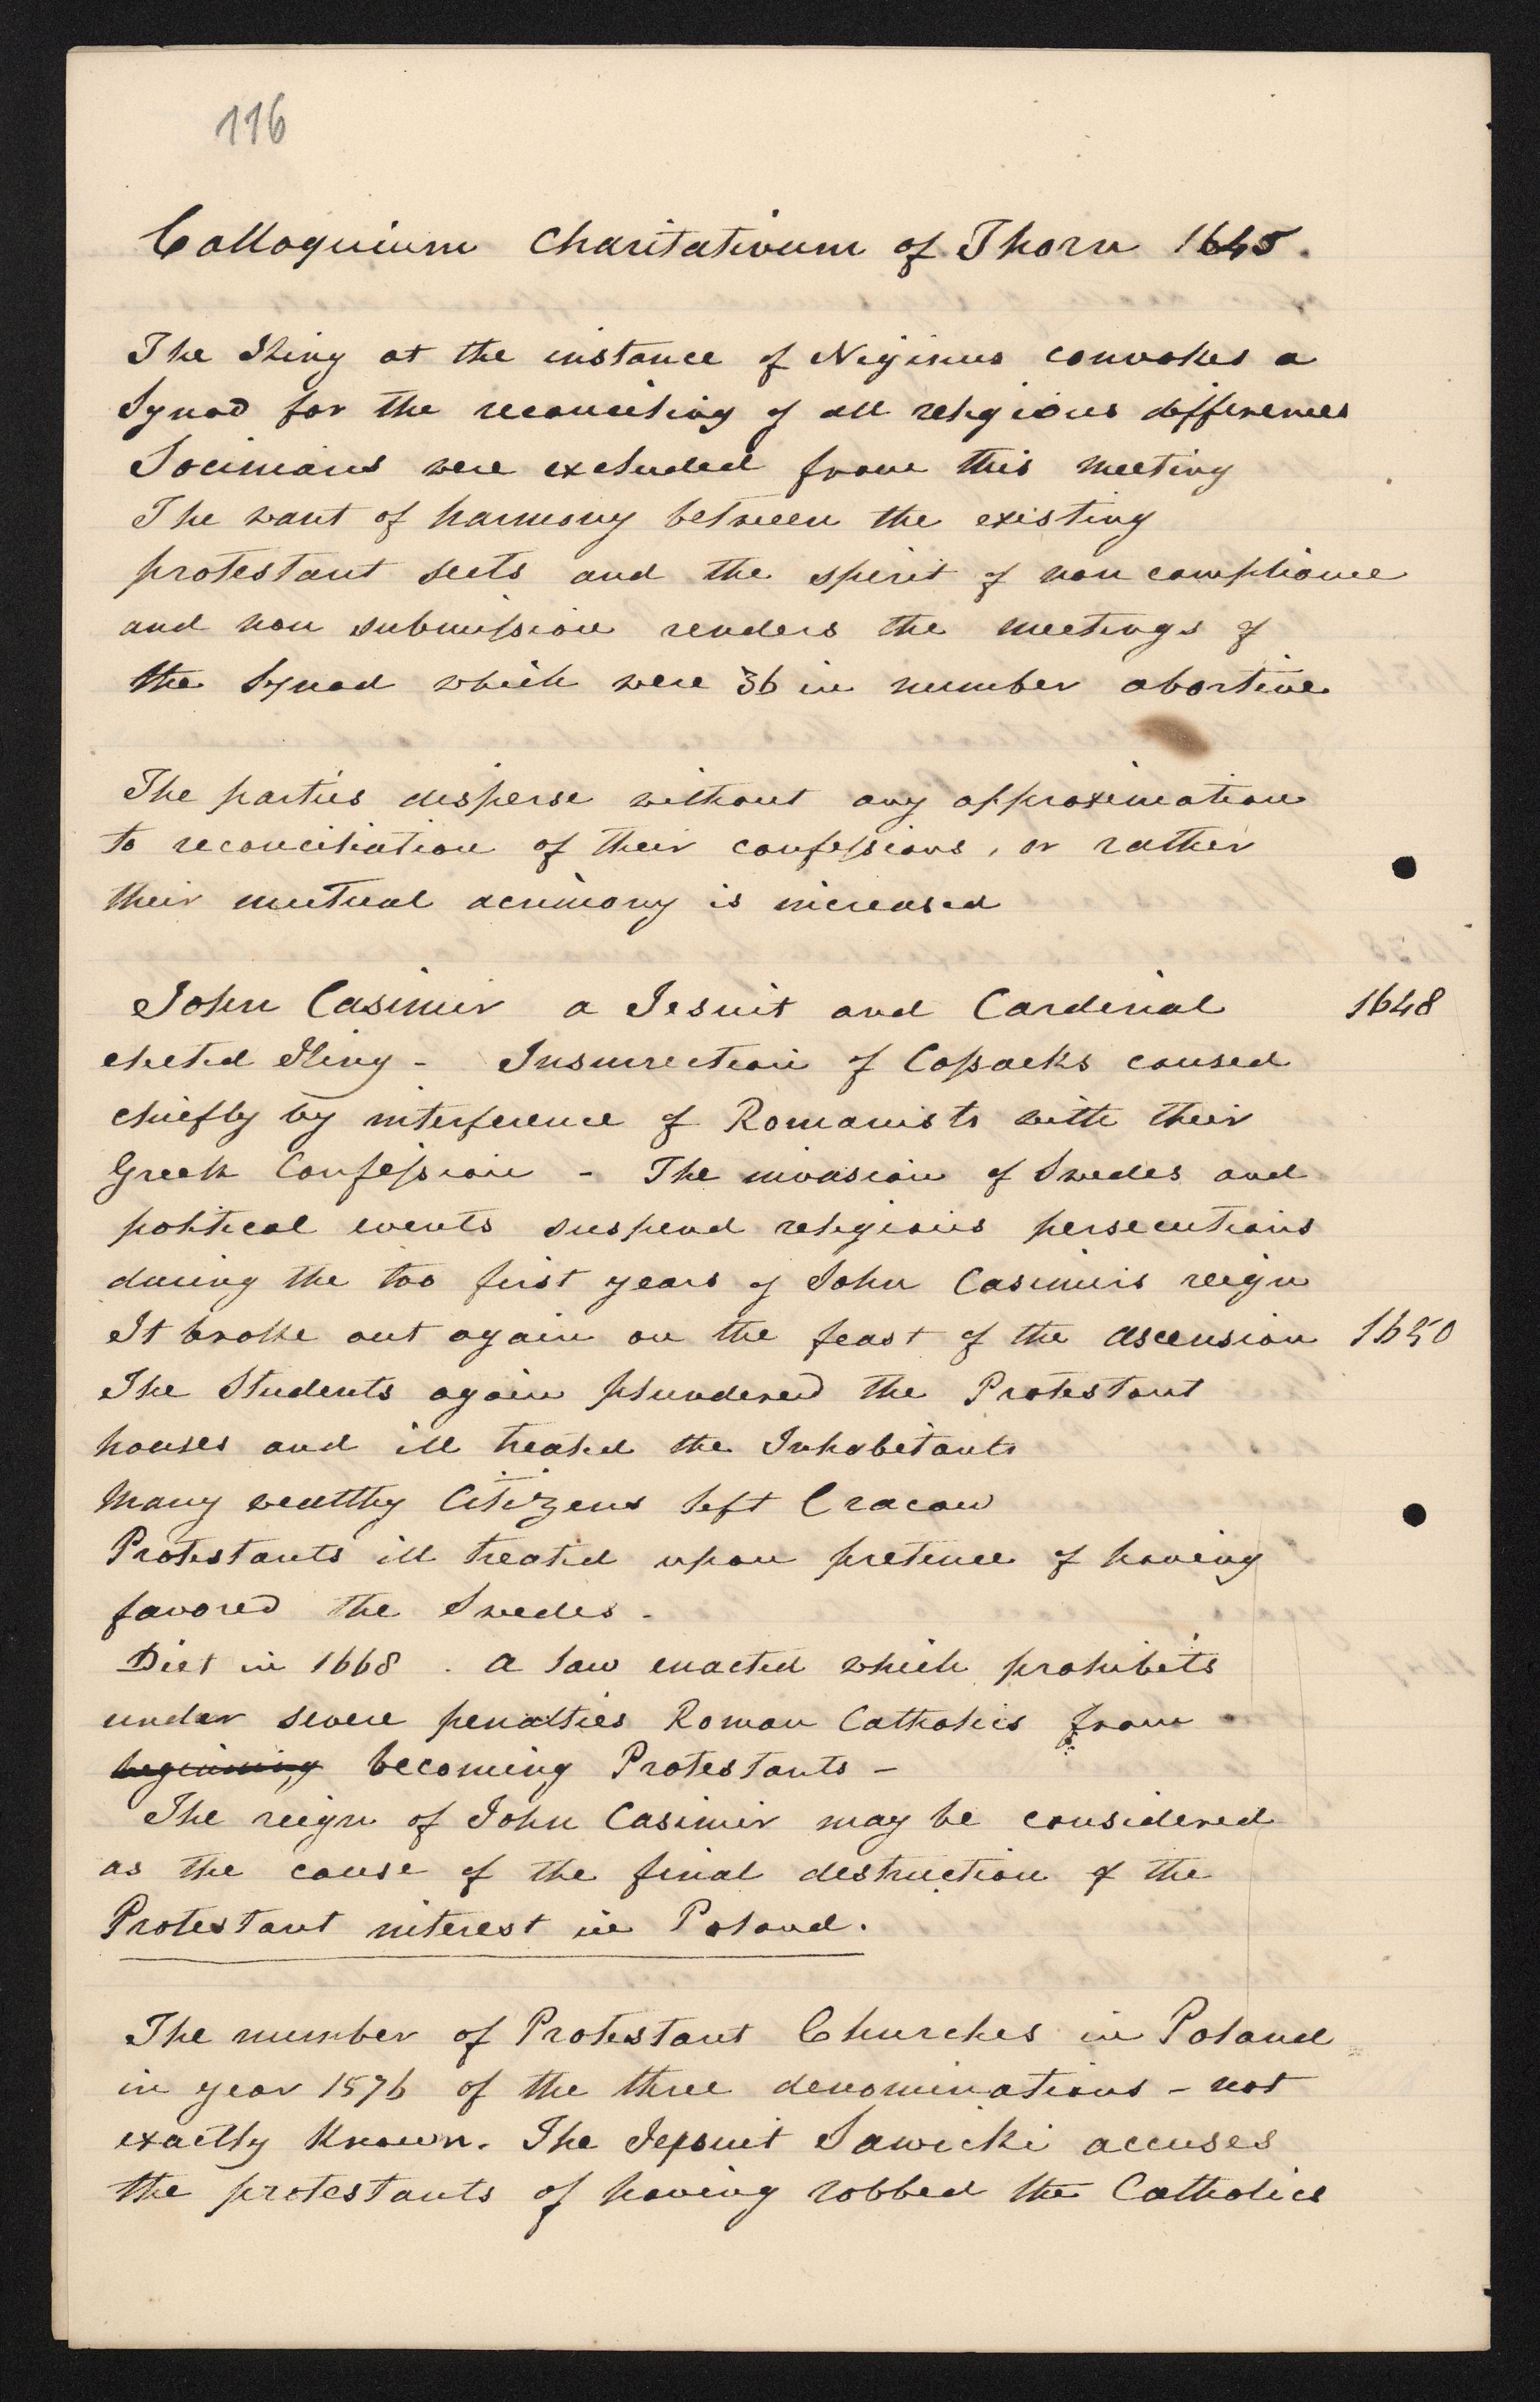 116
Colloquium Charitativum of Thorn 1645.
The King at the instance of Niginus convokes a
Synod for the reconciling of all religious differences
Socinians were excluded from this meeting
The want of harmony between the existing
protestant sects and the spirit of non compliance
and non submission renders the meetings of
the Synod which were 36 in number abortive
The parties disperse without any approximation
to reconciliation of their confessions, or rather
their mutual acrimony is increased
John Casimir a Jesuit and Cardinal 1648
elected King - Insurrection of Cossacks caused
chiefly by interference of Romanists with their
Greek Confession - The invasion of Swedes and
political events suspend religious persecutions
during the too first years of John Casimirs reign
It broke out again on the feast of the ascension 1650
The Students again plundered the Protestant
houses and ill treated the Inhabitants
Many wealthy Citizens left Cracow
Protestants ill treated upon pretence of having
favored the Swedes -
Diet in 1668 . a law enacted which prohibits
under severe penalties Roman Catholics from
beginning becoming Protestants -
The reign of John Casimir may be considered
as the cause of the final destruction of the
Protestant interest in Poland.
The number of Protestant Churches in Poland
in year 1576 of the three denominations - not
exactly known. The Jesuit Sawicki accuses
the protestants of having robbed the Catholics